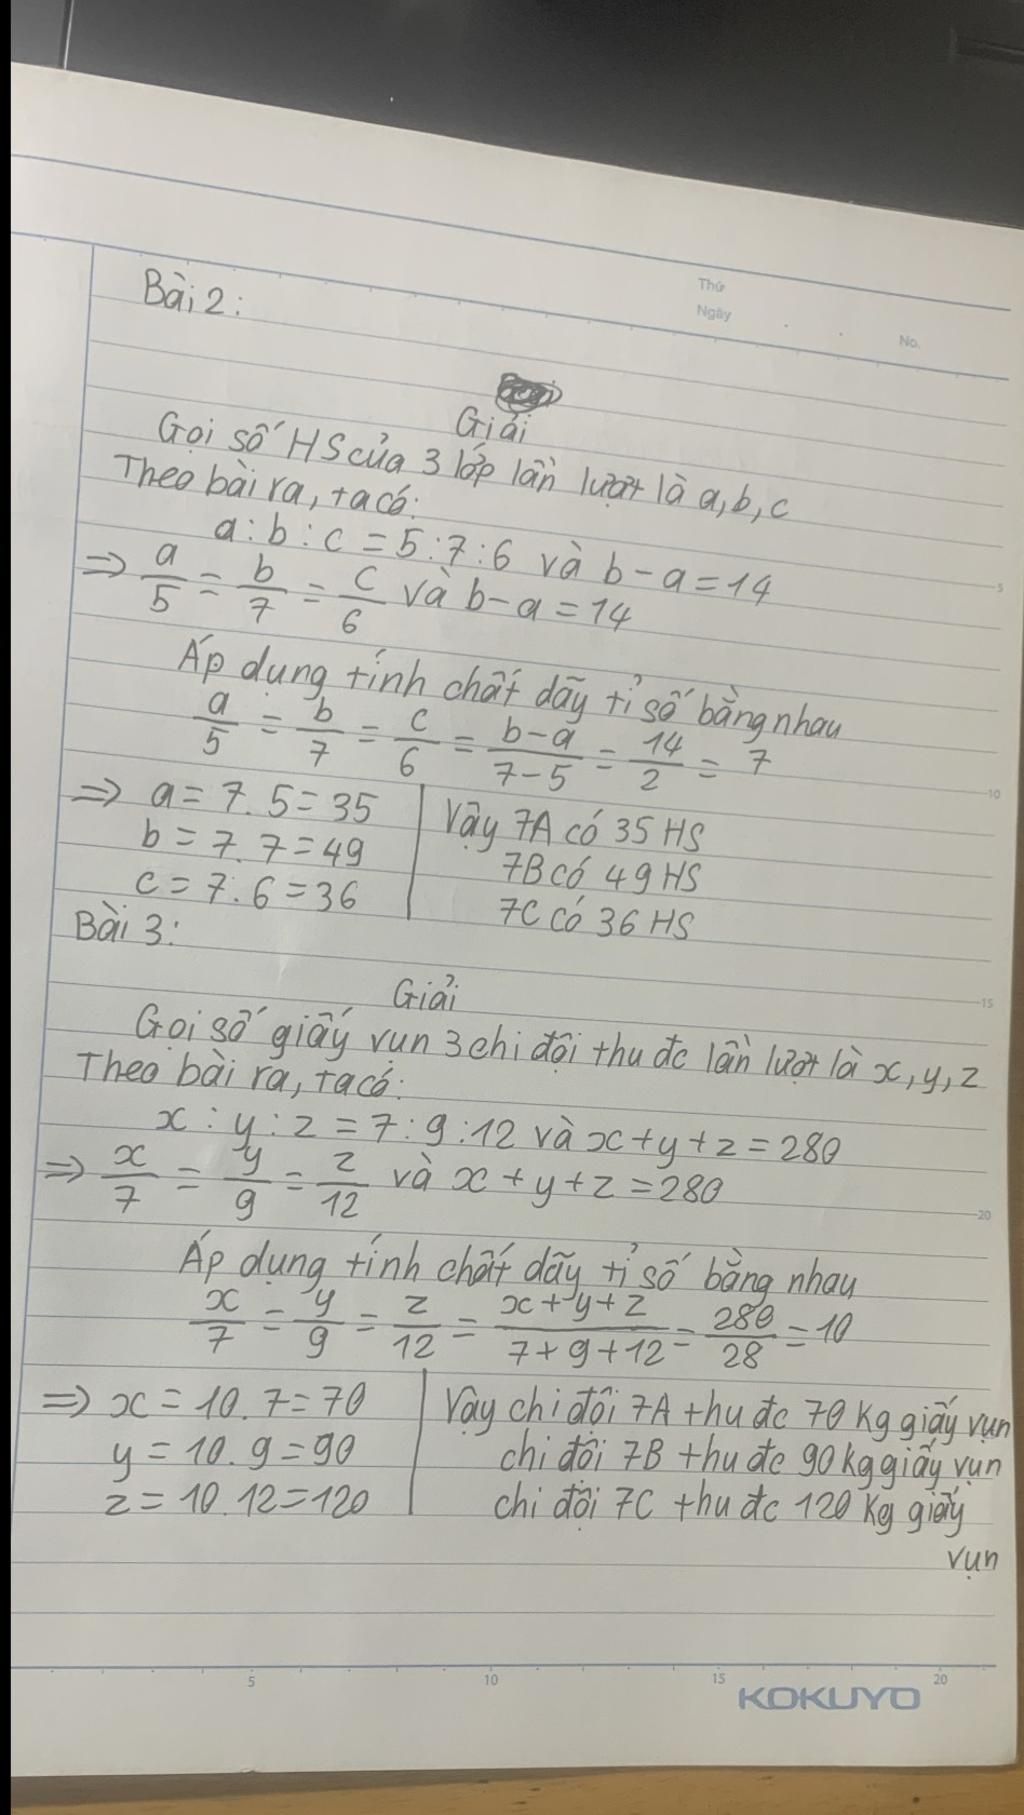 Thứ
Ngày . .
No.
Bài 2:
Giải
Gọi số HS của 3 lớp lần lượt là a, b, c
Theo bài ra, ta có:
a : b : c = 5 : 7 : 6 và b - a = 14
=> a/5 = b/7 = c/6 và b - a = 14
Áp dụng tính chất dãy tỉ số bằng nhau
a/5 = b/7 = c/6 = b-a/7-5 = 14/2 = 7
=> a = 7.5 = 35
b = 7.7 = 49
c = 7.6 = 36
Vậy 7A có 35 HS
7B có 49 HS
7C có 36 HS
Bài 3:
Giải
Gọi số giấy vụn 3 chi đội thu đc lần lượt là x, y, z
Theo bài ra, ta có:
x : y : z = 7 : 9 : 12 và x + y + z = 280
=> x/7 = y/9 = z/12 và x + y + z = 280
Áp dụng tính chất dãy tỉ số bằng nhau
x/7 = y/9 = z/12 = x+y+z/7+9+12 = 280/28 = 10
=> x = 10.7 = 70
y = 10.9 = 90
z = 10.12 = 120
Vậy chi đội 7A thu đc 70 kg giấy vụn
chi đội 7B thu đc 90 kg giấy vụn
chi đội 7C thu đc 120 kg giấy
vụn
5
10
15
20
5 10 15 20
KOKUYO